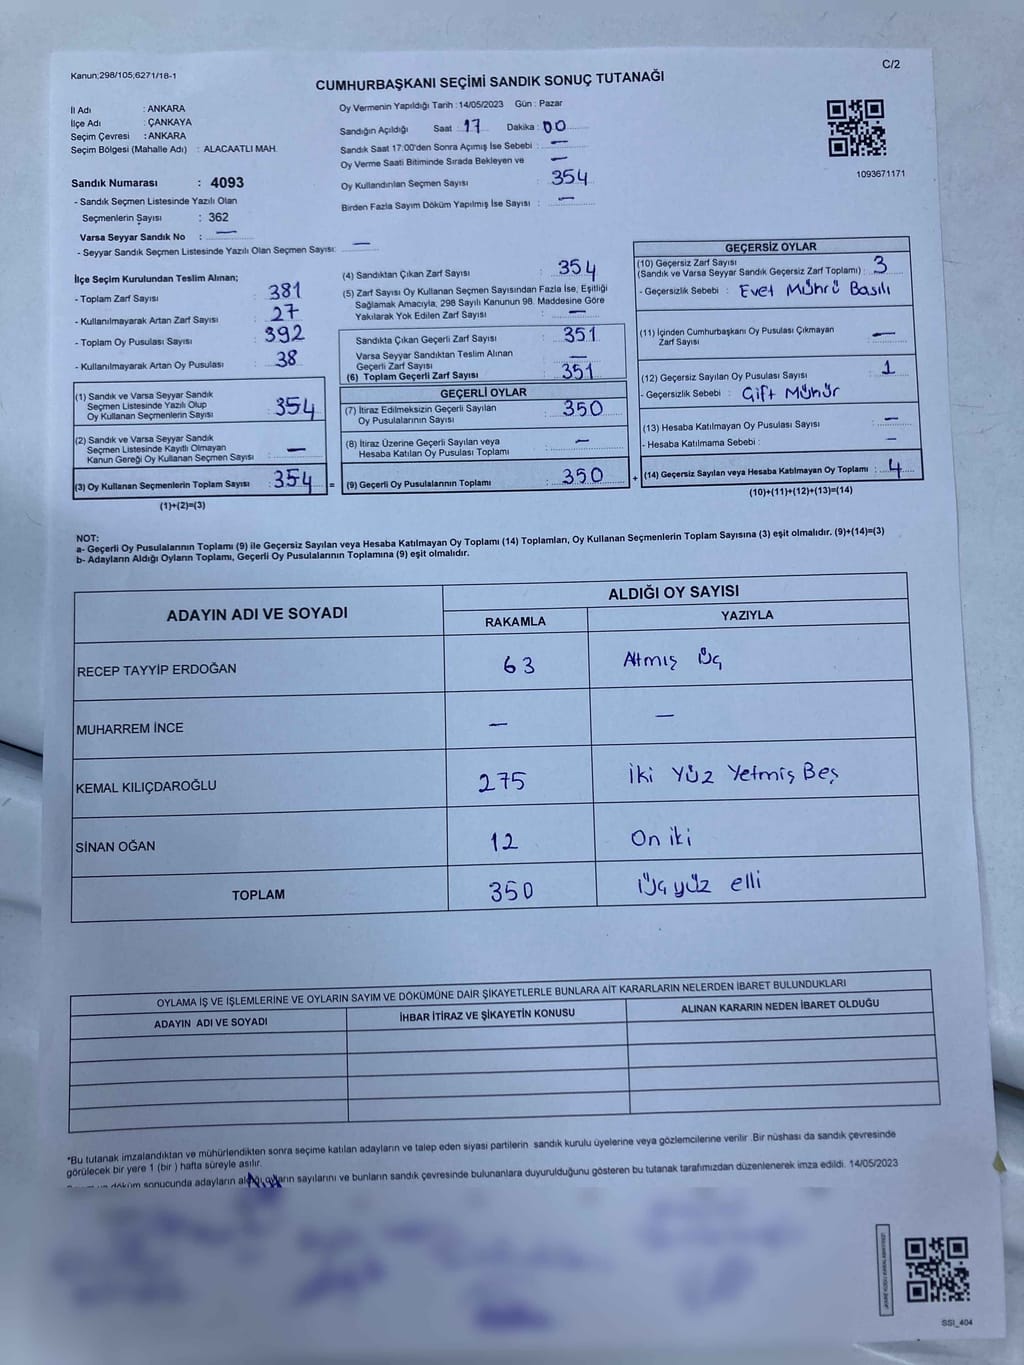 Kanun;298/105,6271/16-1
C/2
CUMHURBAŞKANI SEÇİMİ SANDIK SONUÇ TUTANAĞI
İl Adı : ANKARA
İlçe Adı : ÇANKAYA
Seçim Çevresi : ANKARA
Seçim Bölgesi (Mahalle Adı) : ALACAATLI MAH.
Sandık Numarası : 4093
- Sandık Seçmen Listesinde Yazılı Olan
Seçmenlerin Sayısı : 362
Varsa Seyyar Sandık No : —
- Seyyar Sandık Seçmen Listesinde Yazılı Olan Seçmen Sayısı: —
Oy Vermenin Yapıldığı Tarih : 14/05/2023 Gün : Pazar
Sandığın Açıldığı Saat : 17 Dakika : 00
Sandık Saat 17:00'den Sonra Açımış İse Sebebi : —
Oy Verme Saati Bitiminde Sırada Bekleyen ve —
Oy Kullandırılan Seçmen Sayısı : 354
Birden Fazla Sayım Döküm Yapılmış İse Sayısı : —
1093671171
İlçe Seçim Kurulundan Teslim Alınan;
- Toplam Zarf Sayısı : 381
- Kullanılmayarak Artan Zarf Sayısı : 27
- Toplam Oy Pusulası Sayısı : 392
- Kullanılmayarak Artan Oy Pusulası : 38
(1) Sandık ve Varsa Seyyar Sandık
Seçmen Listesinde Yazılı Olup
Oy Kullanan Seçmenlerin Sayısı : 354
(2) Sandık ve Varsa Seyyar Sandık
Seçmen Listesinde Kayıtlı Olmayan
Kanun Gereği Oy Kullanan Seçmen Sayısı : —
(3) Oy Kullanan Seçmenlerin Toplam Sayısı : 354 =
(1)+(2)=(3)
(4) Sandıktan Çıkan Zarf Sayısı : 354
(5) Zarf Sayısı Oy Kullanan Seçmen Sayısından Fazla İse, Eşitliği
Sağlamak Amacıyla, 298 Sayılı Kanunun 98. Maddesine Göre
Yakılarak Yok Edilen Zarf Sayısı : —
Sandıkta Çıkan Geçerli Zarf Sayısı : 351
Varsa Seyyar Sandıktan Teslim Alınan
Geçerli Zarf Sayısı : —
(6) Toplam Geçerli Zarf Sayısı : 351
GEÇERLİ OYLAR
(7) İtiraz Edilmeksizin Geçerli Sayılan
Oy Pusulasının Sayısı : 350
(8) İtiraz Üzerine Geçerli Sayılan veya
Hesaba Katılan Oy Pusulası Toplamı : —
(9) Geçerli Oy Pusulalarının Toplamı : 350 +
GEÇERSİZ OYLAR
(10) Geçersiz Zarf Sayısı
(Sandık ve Varsa Seyyar Sandık Geçersiz Zarf Toplamı) : 3
- Geçersizlik Sebebi : Evet Mührü Basılı
(11) İçinden Cumhurbaşkanı Oy Pusulası Çıkmayan
Zarf Sayısı : —
(12) Geçersiz Sayılan Oy Pusulası Sayısı : 1
- Geçersizlik Sebebi : Çift Mühür
(13) Hesaba Katılmayan Oy Pusulası Sayısı : —
- Hesaba Katılmama Sebebi : —
(14) Geçersiz Sayılan veya Hesaba Katılmayan Oy Toplamı : 4
(10)+(11)+(12)+(13)=(14)
NOT:
a- Geçerli Oy Pusulalarının Toplamı (9) ile Geçersiz Sayılan veya Hesaba Katılmayan Oy Toplamı (14) Toplamları, Oy Kullanan Seçmenlerin Toplam Sayısına (3) eşit olmalıdır. (9)+(14)=(3)
b- Adayların Aldığı Oyların Toplamı, Geçerli Oy Pusulalarının Toplamına (9) eşit olmalıdır.
ADAYIN ADI VE SOYADI
ALDIĞI OY SAYISI
RAKAMLA YAZIYLA
RECEP TAYYİP ERDOĞAN 63 Altmış üç
MUHARREM İNCE — —
KEMAL KILIÇDAROĞLU 275 iki Yüz Yetmiş Beş
SİNAN OĞAN 12 On iki
TOPLAM 350 üç yüz elli
OYLAMA İŞ VE İŞLEMLERİNE VE OYLARIN SAYIM VE DÖKÜMÜNE DAİR ŞİKAYETLERLE BUNLARA AİT KARARLARIN NELERDEN İBARET BULUNDUKLARI
ADAYIN ADI VE SOYADI İHBAR İTİRAZ VE ŞİKAYETİN KONUSU ALINAN KARARIN NEDEN İBARET OLDUĞU
*Bu tutanak imzalandıktan ve mühürlendikten sonra seçime katılan adayların ve talep eden siyasi partilerin sandık kurulu üyelerine veya gözlemcilerine verilir .Bir nüshası da sandık çevresinde
görülecek bir yere 1 (bir ) hafta süreyle asılır.
döküm sonucunda adayların aldığı oyların sayılarını ve bunların sandık çevresinde bulunanlara duyurulduğunu gösteren bu tutanak tarafımızdan düzenlenerek imza edildi. 14/05/2023
SSI_404